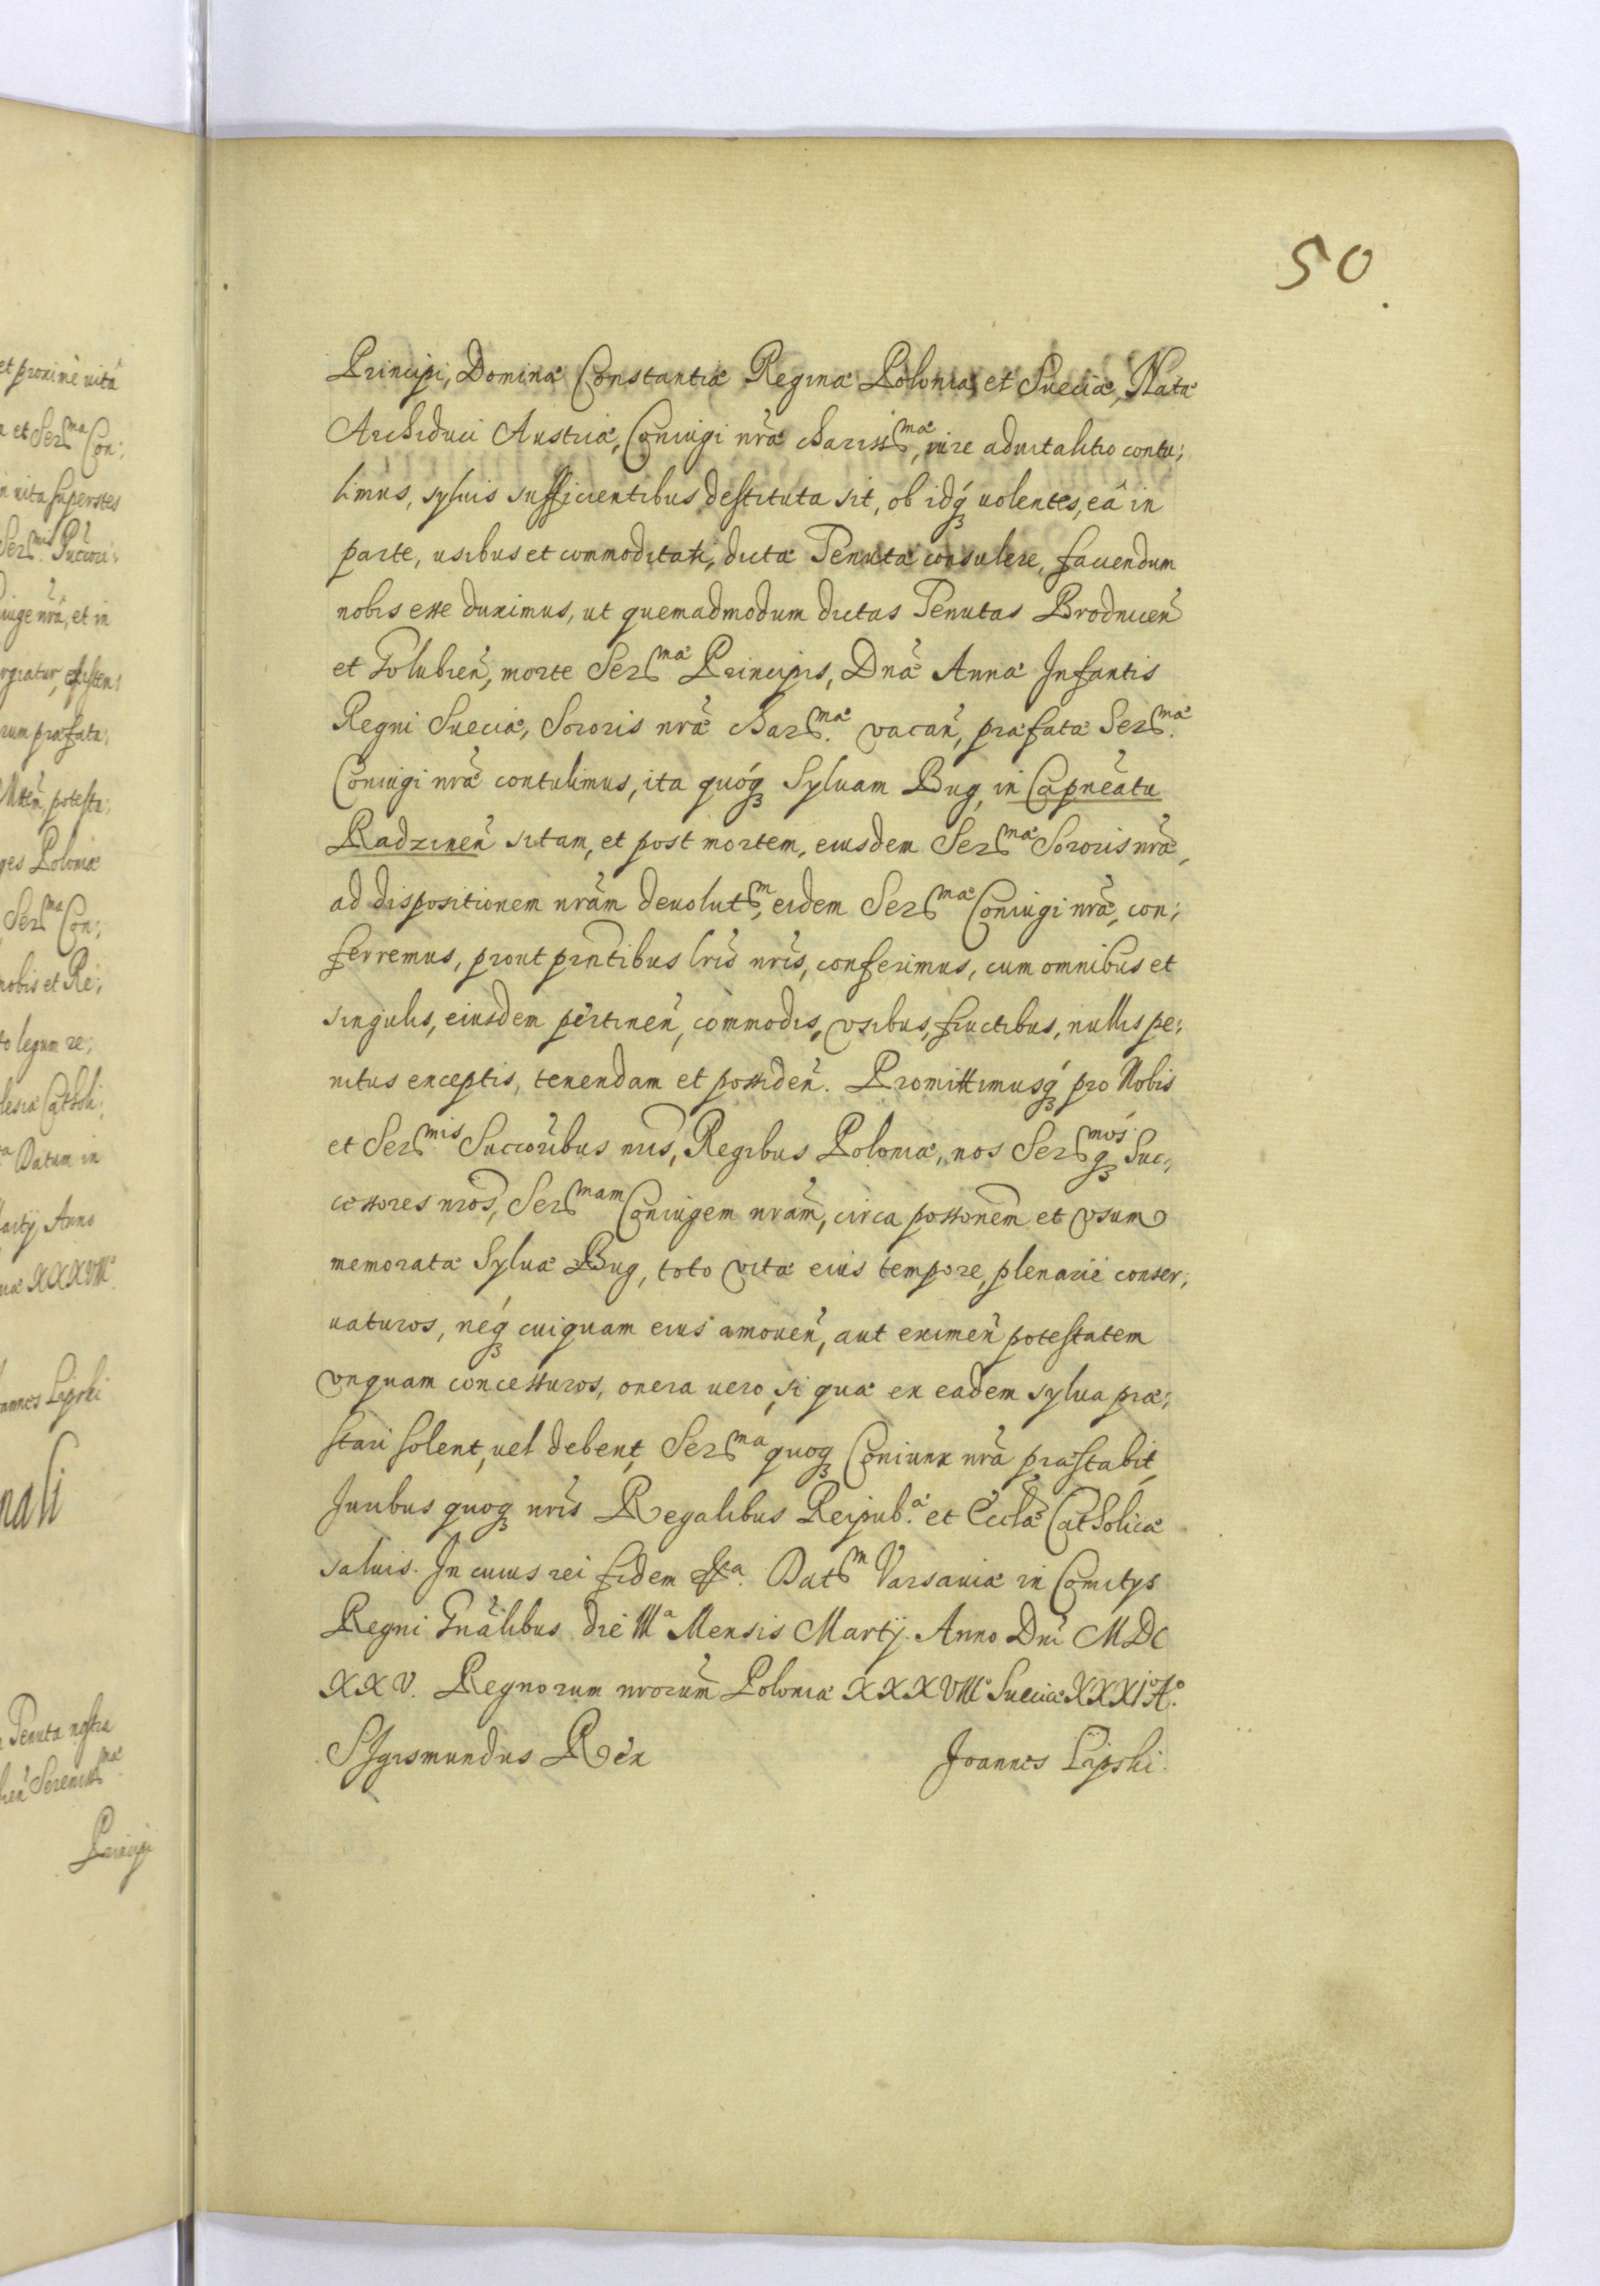 50
Principi, Dominæ Constantiæ Reginæ Poloniæ et Sueciæ, Natæ
Archiduci Austriæ, Coniugi nræ chariss^mæ, iure aduitalitio contu;
limus, syluis sufficientibus destituta sit, ob idq́ uolentes, eâ in
parte, usibus et commoditati, dictæ Tenutæ consulere, faciendum
nobis esse duximus, ut quemadmodum dictas Tenutas Brodnicen̄
et Golubien̄, morte Ser^mæ Principis, Dnæ Annæ Infantis
Regni Sueciæ, Sororis nræ char^mæ. vacan̄, præfatæ Ser^mæ.
Coniugi nræ contulimus, ita quóq Syluam Bug, in Capneatu
Radzinen̄ sitam, et post mortem, eiusdem Ser^mæ Sororis nræ,
ad dispositionem nram deuolut^m, eidem Ser^mæ Coniugi nræ, con;
ferremus, prout pntibus lris nris, conferimus, cum omnibus et
singulis, eiusdem pertinen̄, commodis, vsibus, fructibus, nullis pe;
nitus exceptis, tenendam et possiden̄. Promittimusq́ pro Nobis
et Ser^mis Succoribus nris, Regibus Poloniæ, nos Ser^mósq Suc;
cessores nros, Ser^mam Coniugem nram, circa possonem et vsum
memoratæ Syluæ Bug, toto vitæ eius tempore, plenariè conser;
uaturos, néq cuiquam eius amouen̄, aut eximen̄ potestatem
vnquam concessuros, onera uero, si quæ ex eadem sylua præ;
stari solent, uel debent, Ser^ma quoq Coniunx nra præstabit,
Juribus quoq nris Regalibus Reipub^æ. et Ecclæ Catholicæ
saluis. In cuius rei fidem &^a. Dat^m Varsauiæ in Comitijs
Regni Gnalibus die III^a Mensis Martij. Anno Dni MDC
XXV. Regnorum nrorum Poloniæ XXXVIII^o Sueciæ XXXI^o A^o.
Sigismundus Rex Joannes Lipski.